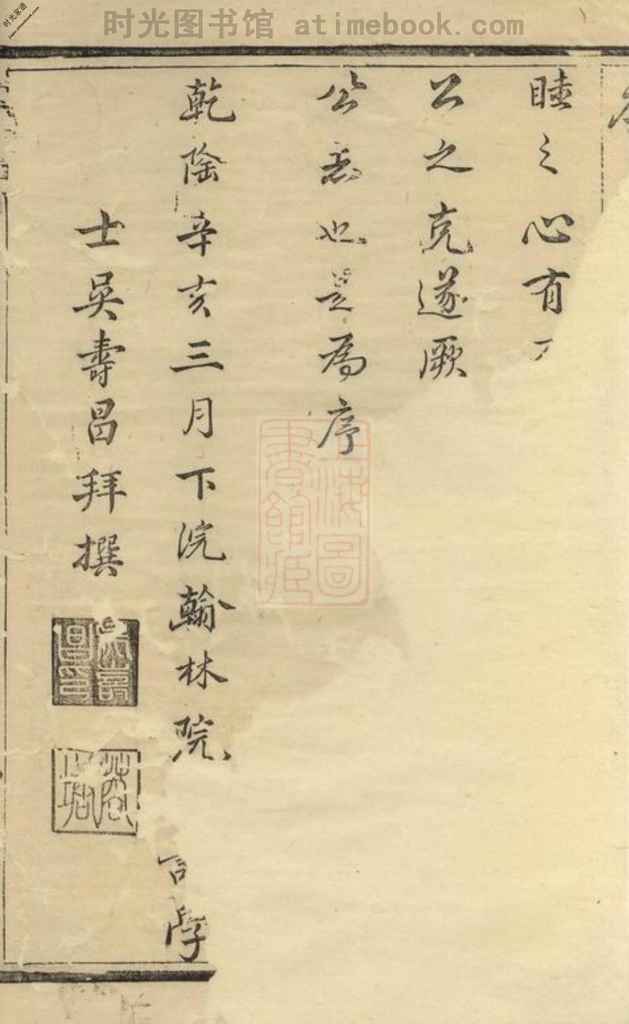 时光图书馆 atimebook.com
睦之心有
公之克遂厥
公志也是為序
乾隆辛亥三月下浣翰林院
學
士吳壽昌拜撰